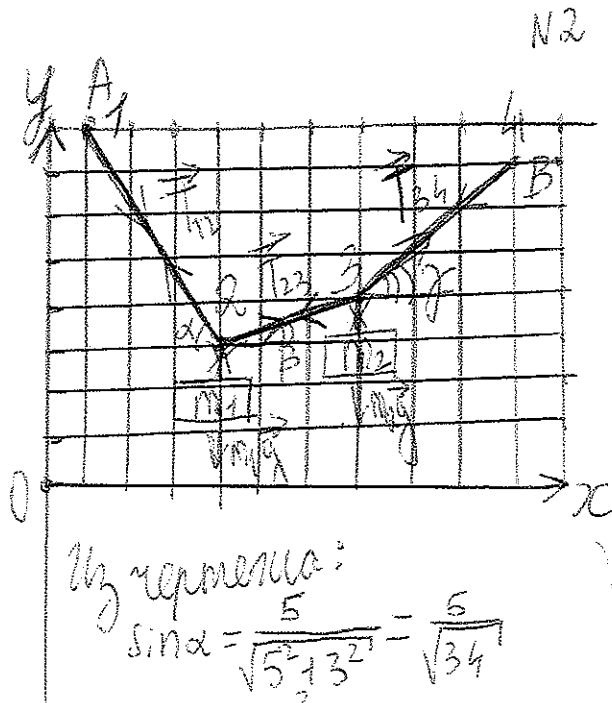 N2
y A 1 4
B
T₁₂ T₃₄
2 T₂₃ 3
α β γ
m₁ m₂
m₁g m₂g
0 x
Из чертежа:
sinα = 5/√(5²+3²) = 5/√34